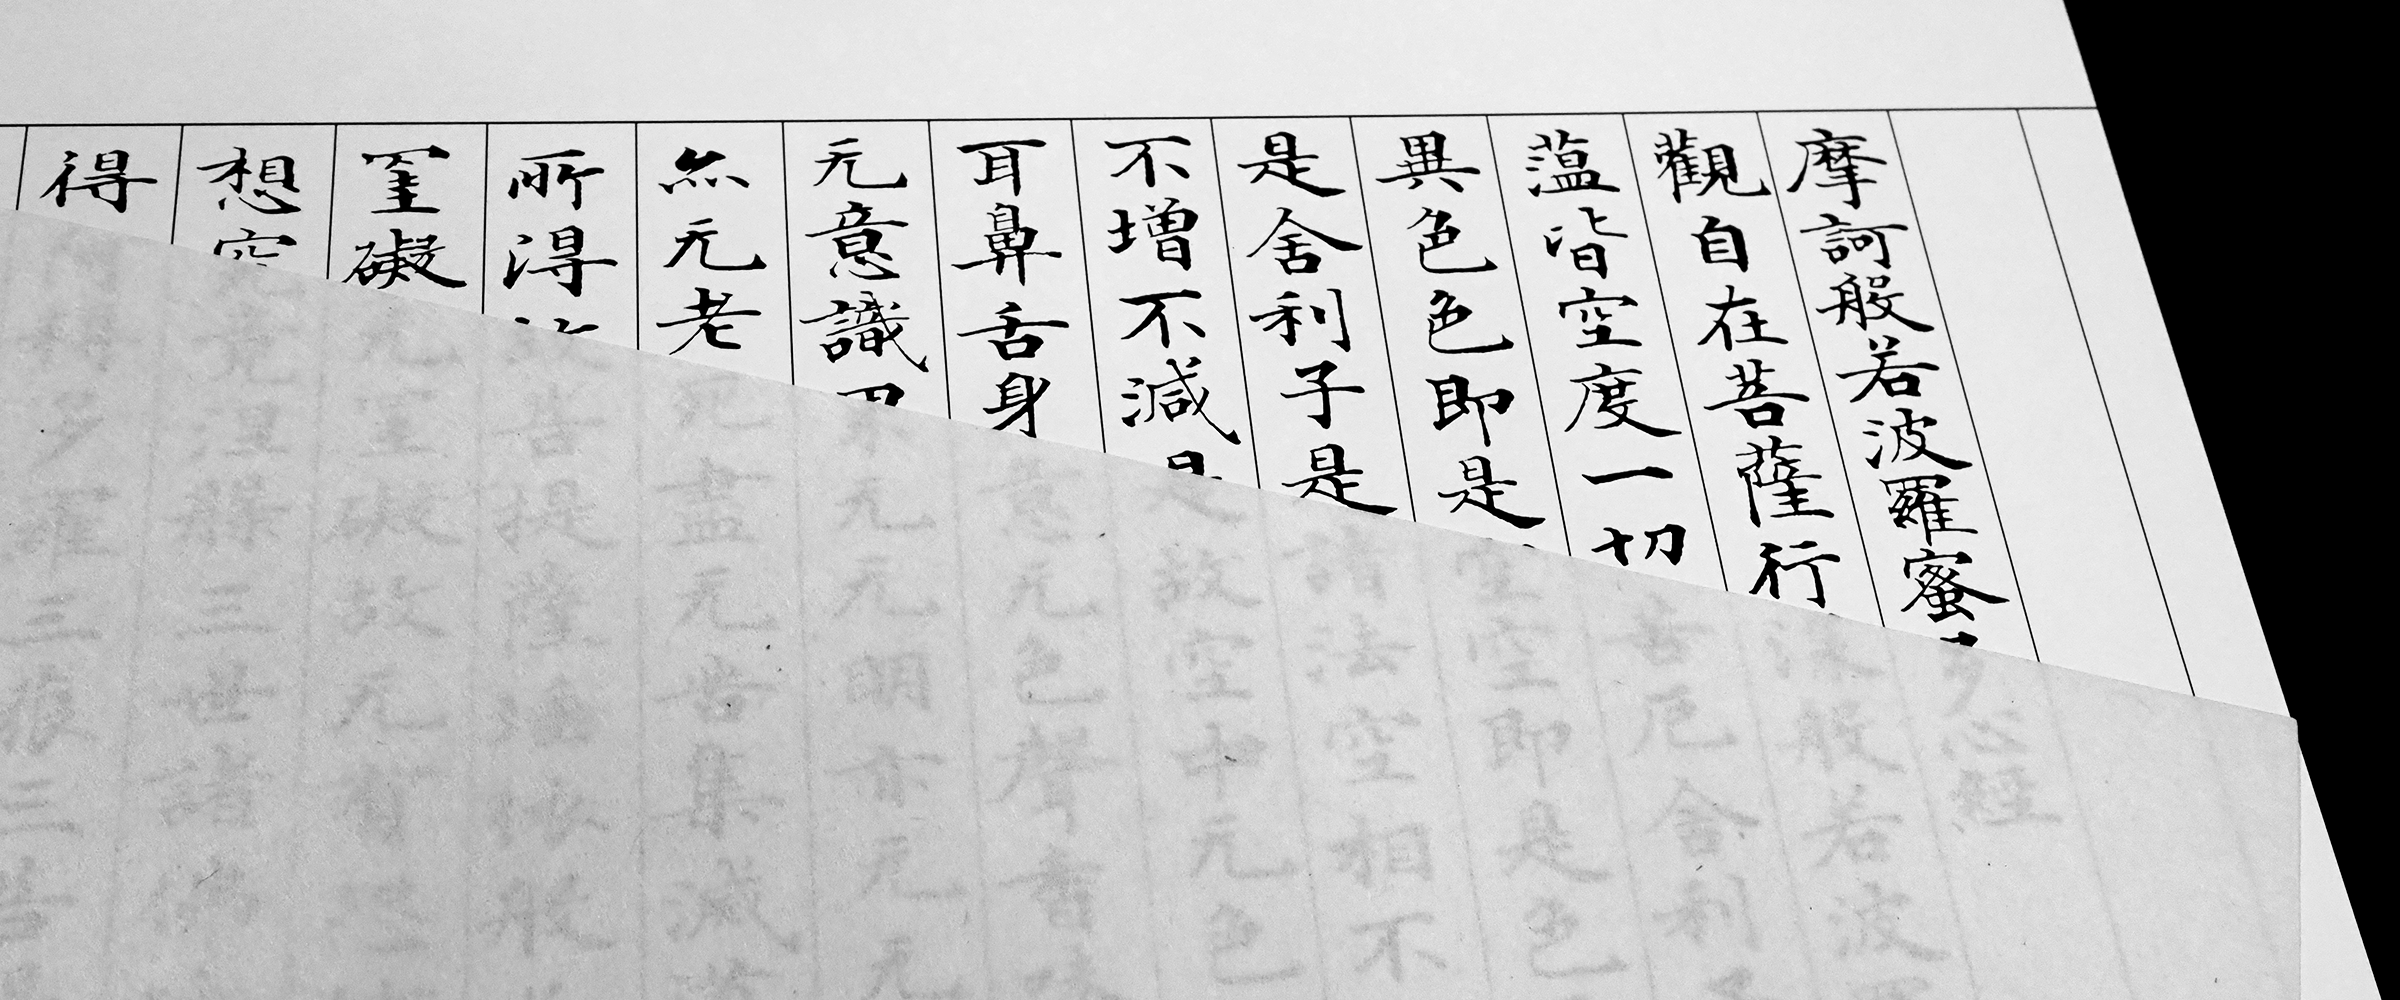 摩訶般若波羅蜜多心經
觀自在菩薩行深般若波
薀皆空度一切苦厄舍利
異色色即是空空即是色
是舍利子是諸法空相不
不增不減是故空中无色
耳鼻舌身意无色聲香味
无意識界无无明亦无无
亦无老死盡无苦集滅
所得故菩提薩埵依般
罣礙无罣礙故无有恐
想究竟涅槃三世諸佛
得耨多羅三藐三菩